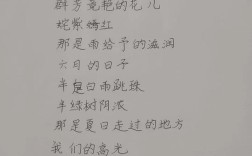 群芳竞艳的花儿
姹紫嫣红
那是雨给予的滋润
六月的日子
半是白雨跳珠
半绿树阴浓
那是夏日走过的地方
我们的高光